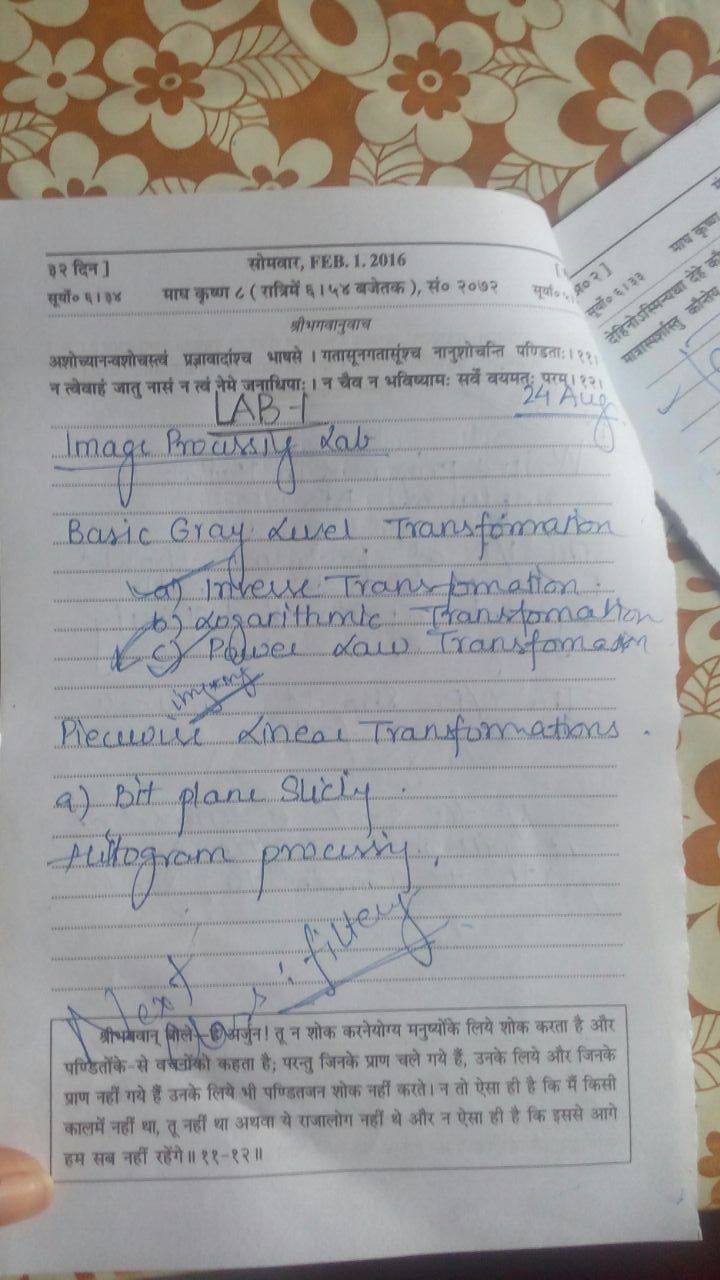 ३२ दिन ]
सोमवार, FEB. 1. 2016
सूर्यो० ६।३४
माघ कृष्ण ८ ( रात्रिमें ६।५४ बजेतक ), सं० २०७२
सूर्या०
श्रीभगवानुवाच
अशोच्यानन्वशोचस्त्वं प्रज्ञावादांश्च भाषसे । गतासूनगतासूंश्च नानुशोचन्ति पण्डिताः।११।
न त्वेवाहं जातु नासं न त्वं नेमे जनाधिपाः। न चैव न भविष्यामः सर्वे वयमतः परम्।१२।
LAB-1
24 Aug
Image Processing Lab
Basic Gray Level Transformation
a) Inverse Transformation.
b) Logarithmic Transformation
c) Power Law Transformation
Piecewise Linear Transformations.
a) Bit plane Slicing.
Histogram processing.
Next
: filtering
श्रीभगवान् बोले—हे अर्जुन! तू न शोक करनेयोग्य मनुष्योंके लिये शोक करता है और
पण्डितोंके-से वचनोंको कहता है; परन्तु जिनके प्राण चले गये हैं, उनके लिये और जिनके
प्राण नहीं गये हैं उनके लिये भी पण्डितजन शोक नहीं करते। न तो ऐसा ही है कि मैं किसी
कालमें नहीं था, तू नहीं था अथवा ये राजालोग नहीं थे और न ऐसा ही है कि इससे आगे
हम सब नहीं रहेंगे॥ ११-१२॥
२०२ ]
माघ कृष्ण
सूर्यो० ६।३३
देहिनोऽस्मिन्यथा देहे कौ
मात्रास्पर्शास्तु कौन्तेय